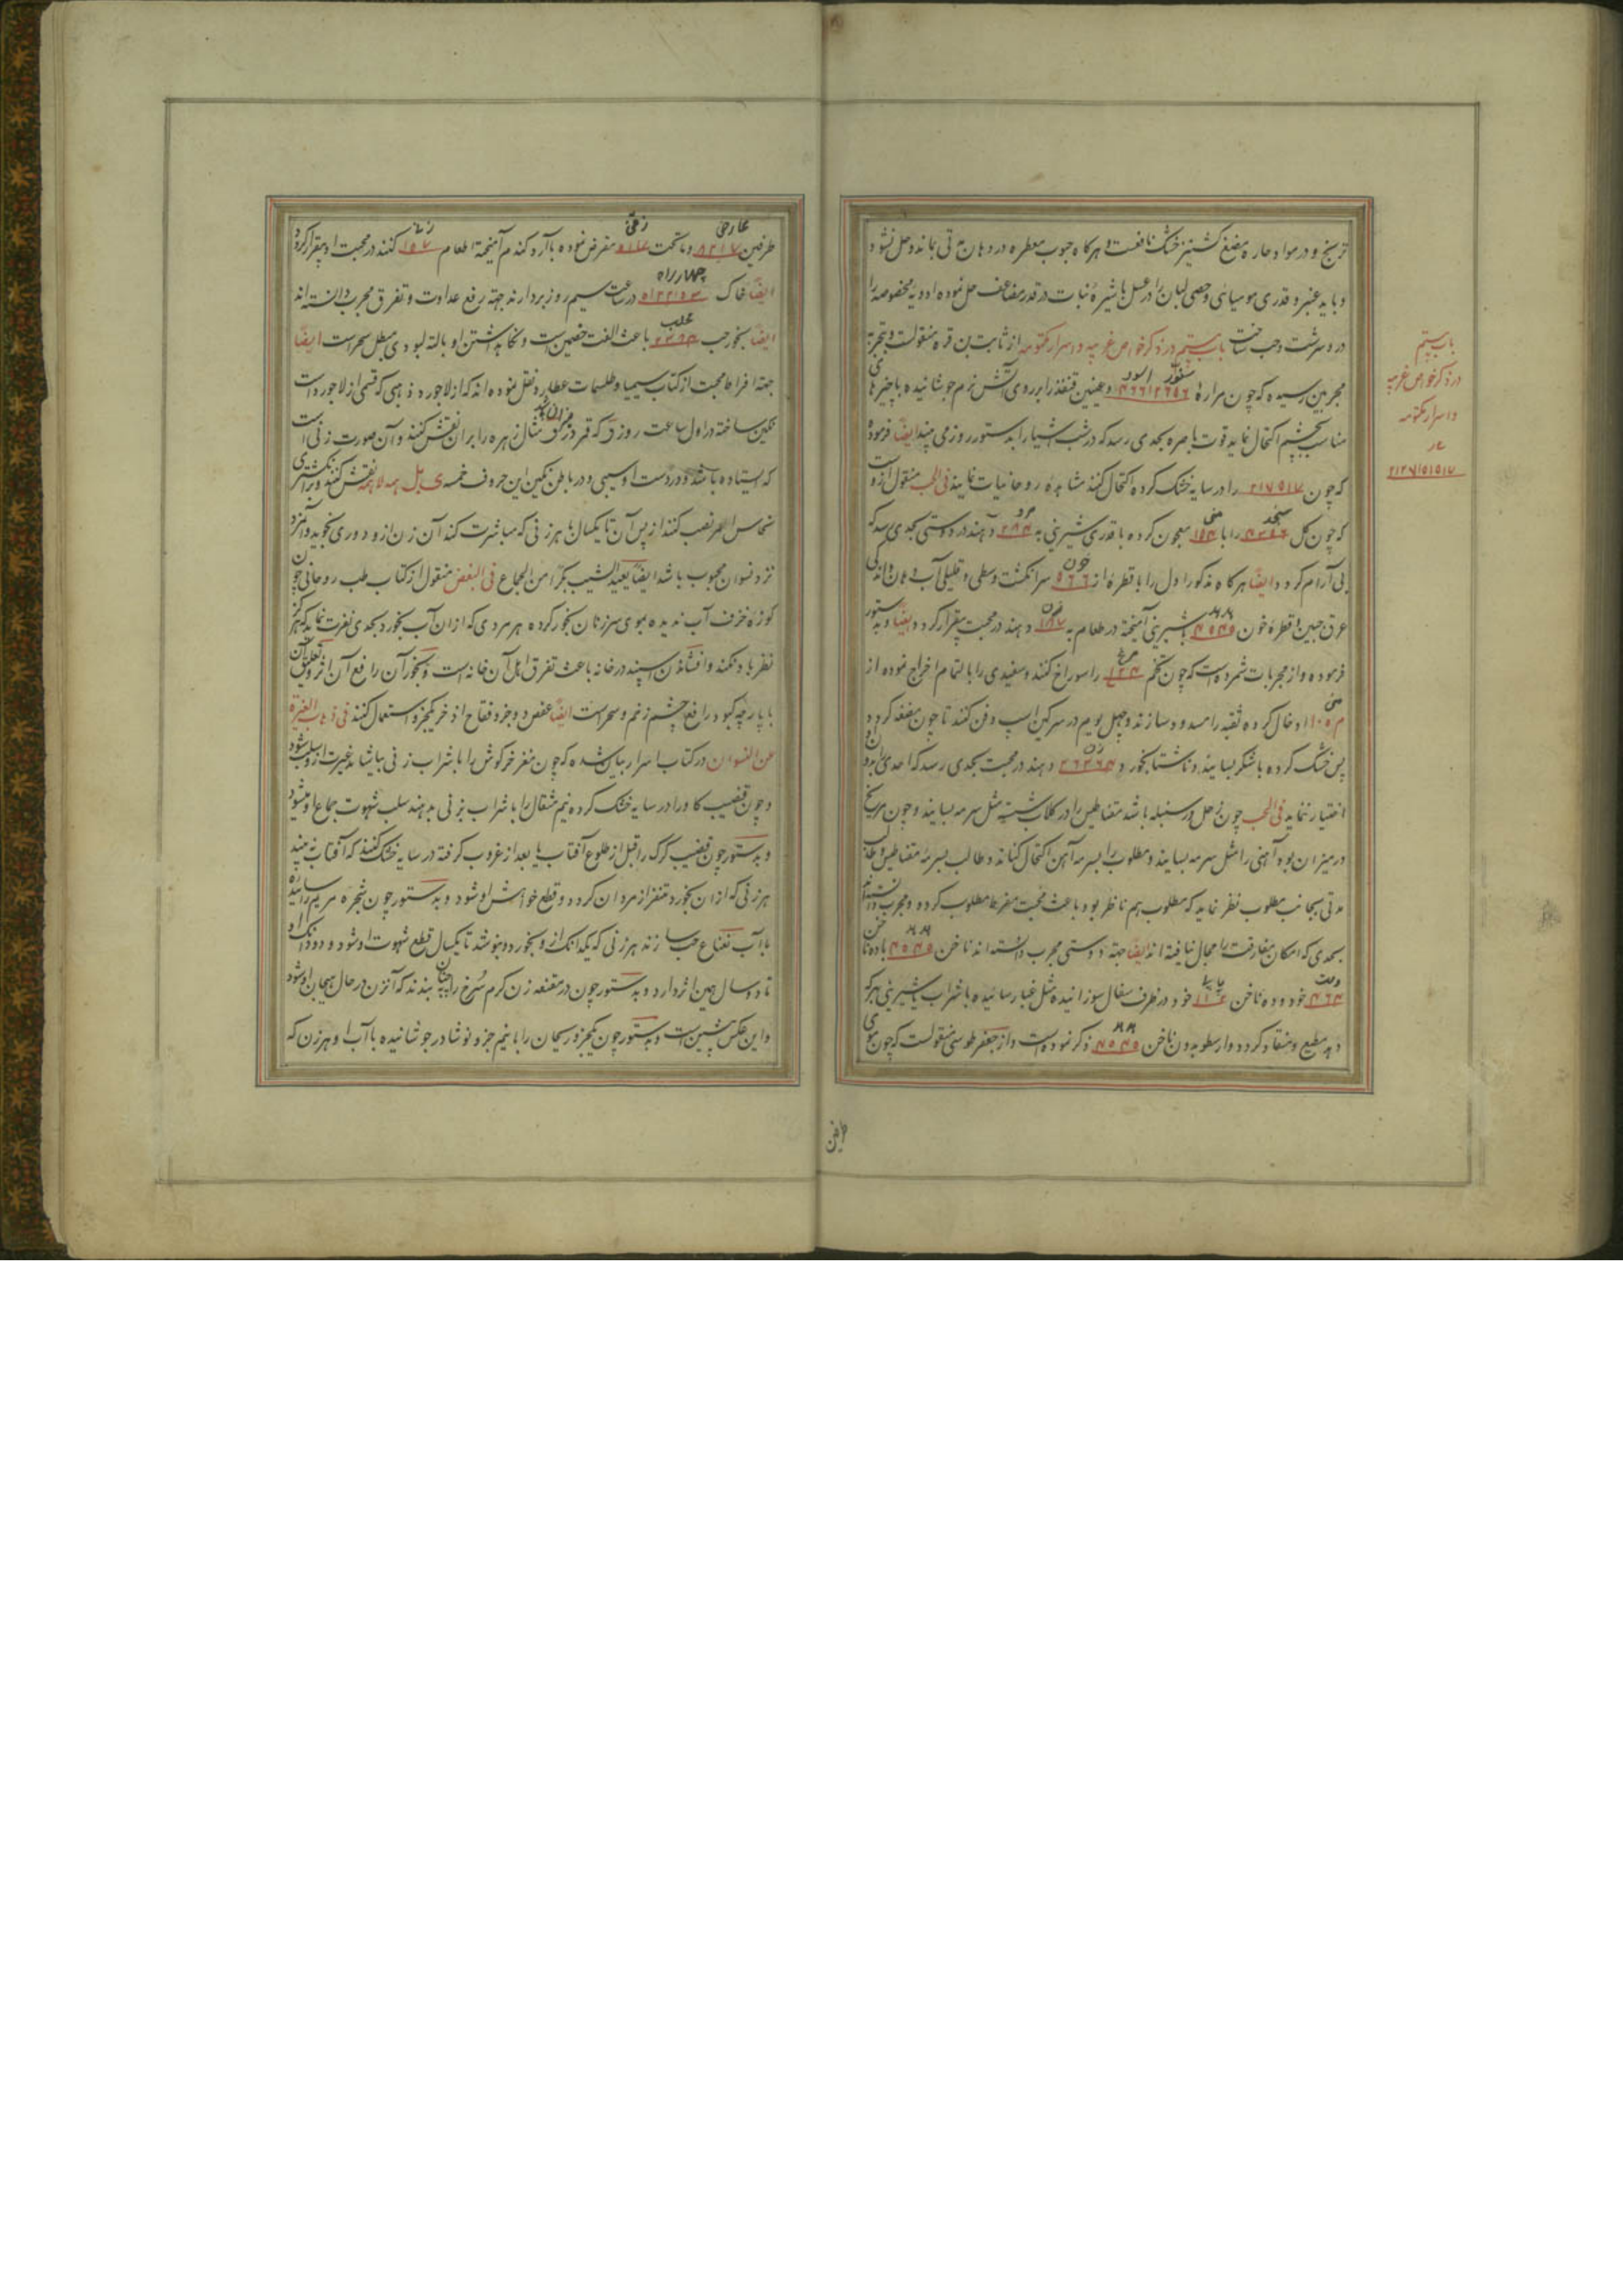 ترنج و در مواد حاره مضغ کشنیز خشک نافعست و هرکاه حبوب معطره در دهان مدتی بماند و حل نشود
و باید عنبر و قدری مومیائی و حصی لبان را در عسل یا شیره نبات در قدر مضاعف حل نموده ادویه مخصوصه را
در و سرشت و حب ساخت باب بیستم در ذکر خواص غریبه و اسرار مکتومه از ثابت بن قره منقولست و بتجربه
مجربین رسیده که چون مراره سنور اسود و همچنین قنفذ را بر روی آتش نرم جوشانیده با چیزهای
مناسب چشم اکتحال نماید قوت باصره بحدی رسد که در شب اشیا را بدستور روز می بیند ایضا فرموده
که چون ۲۱۷۵۱۷ را در سایه خشک کرده اکتحال کنند مشاهده روحانیات نمایند فی الحب منقول از و است
که چون کل سنجد را با منی معجون کرده با قدری شیرینی به مرد دهند در دوستی بحدی رسد که
بی آرام کردد ایضا هرکاه مذکور اول را با قطره از خون سر انکشت وسطی و قلیلی آب دهان و اندکی
عرق جبین و قطره خون هدهد بشیرینی آمیخته در طعام به دهند در محبت بیقرار کردد ایضا و بدستور
فرموده و از مجربات شمرده است که چون تخم مرغ را سوراخ کنند و سفیدی را بالتمام اخراج نموده از
منی داخل کرده ثقبه را مسدود سازند و چهل یوم در سرکین اسپ دفن کنند تا چون مضغه کردد
پس خشک کرده با شکر بسایند و ناشتا بخورد دهند در محبت بحدی رسد که احدی را بر او
اختیار ننماید فی الحب چون زحل در سنبله باشد مقناطیس را در کلاب شسته مثل سرمه بسایند و چون مریخ
در میزان بود آهنی را مثل سرمه بسایند و مطلوب را بسرمه آهن اکتحال کناند و طالب بسرمه مقناطیس و طالب
مدتی بجانب مطلوب نظر نماید که مطلوب هم ناظر بود باعث محبت مفرط مطلوب کردد و مجرب دانسته اند
بحدی که امکان مفارقت را محال یافته اند ایضا جهة دوستی مجرب دانسته اند ناخن هدهد با ده ناخن
دست خود و ده ناخن پای خود در ظرف سفال سوزانیده مثل غبار سائیده با شراب یا شیرینی بهر که
دهد مطیع و منقاد کردد و ارسطو بدون ناخن هدهد ذکر نموده است و از جعفر طوسی منقولست که چون موی
طرفین
باب بیستم
در ذکر خواص غریبه
و اسرار مکتومه
طرفین عارض و ماتحت زقن مقرض نموده با آرد کندم آمیخته اطعام زن کنند در محبت او بیقرار کردد
ایضا خاک چهار راه در ساعت سیم روز بردارند جهة رفع عداوت و تفرق مجرب دانسته اند
ایضا بخور حب محلب باعث الفت خصمین است و نکاهداشتن او با لته کبودی مبطل سحر است ایضا
جهة افراط محبت از کتاب سیمیا و طلسمات عطارد نقل نموده اند که از لاجورد ذهبی که قسمی از لاجورد است
نکین ساخته در اول ساعت روزی که قمر در میزان باشد مثال زهره را بران نقش کنند و آن صورت زنی است
که ایستاده باشد و در دست او سیبی و در باطن نکین این حروف خمسه ی بل هه لا نقش کنند و بر انکشتری
نحاس احمر نصب کنند از پس آن تا یکسال با هر زنی که مباشرت کند آن زن از و دوری نجوید و آنمرد
نزد نسوان محبوب باشد ایضا یعید الشیب بکرا من الجماع فی البغض منقول از کتاب طب روحانی چون
کوزه خزف آب ندیده بموی سر زنان بخور کرده هر مردی که ازان آب بخورد بحدی نفرت نماید که هرکز
نظر باو نکند و افشاندن اسپند در خانه باعث تفرق اهل آن خانه است و بخور آن رافع آن اثر و تعلیق آن
با پارچه کبود رافع چشم زخم و سحر است ایضا عفص دو جزو فقاح اذخر یکجزو استعمال کنند فی ذهاب الغیرة
من النسوان در کتاب اسرار بیان شده که چون مغز خرکوش را با شراب زنی بیاشامد غیرت از او سلب شود
و چون قضیب کاو را در سایه خشک کرده نیم مثقال را با شراب بزنی بدهند سلب شهوت جماع او میشود
و بدستور چون قضیب کرک را قبل از طلوع آفتاب یا بعد از غروب کرفته در سایه خشک کنند که آفتاب نه بیند
هر زنی که ازان بخورد متنفر از مردان کردد و قطع خواهش او شود و بدستور چون شجره مریم را سائیده
با آب نعناع حب سازند هر زنی که یکدانک از و بخورد و بنوشد تا یکسال قطع شهوت او شود و دو دانک او
تا دو سال همین اثر دارد و بدستور چون در مقنعه زن کرم سرخ را چنان بندند که آنزن در حال هیجان او شود
و این عکس پیشین است و بدستور چون یکجزو ریحان را با نیم جزو نوشادر جوشانیده با آب او هر زن که